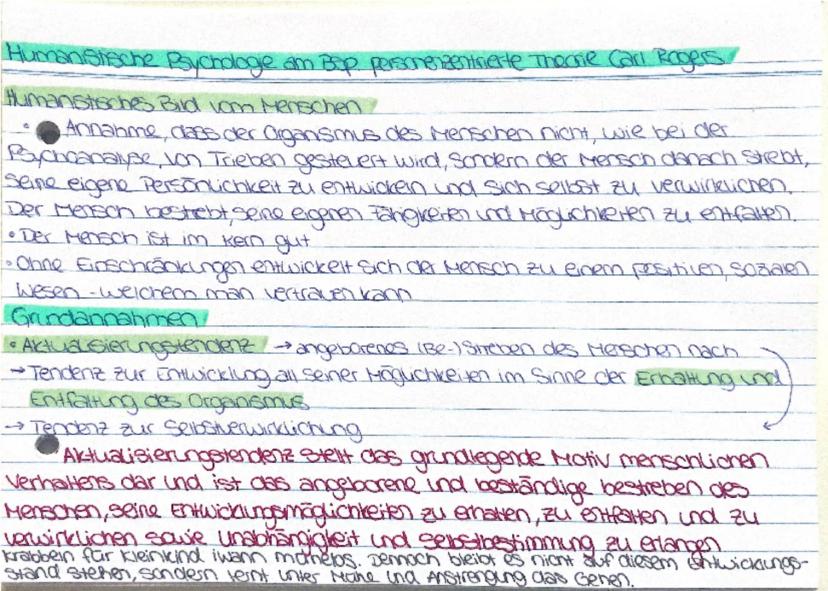 Humanistische Psychologie am Bsp. personenzentrierte Theorie Carl Rogers
Humanistisches Bild vom Menschen
• Annahme, dass der Organismus des Menschen nicht, wie bei der
Psychoanalyse, von Trieben gesteuert wird, sondern der Mensch danach strebt,
seine eigene Persönlichkeit zu entwickeln und sich selbst zu verwirklichen.
Der Mensch bestrebt, seine eigenen Fähigkeiten und Möglichkeiten zu entfalten.
• Der Mensch ist im Kern gut
• Ohne Einschränkungen entwickelt sich der Mensch zu einem positiven, sozialen
Wesen - welchem man vertrauen kann
Grundannahmen
• Aktualisierungstendenz → angeborenes (Be-) Streben des Menschen nach
→ Tendenz zur Entwicklung all seiner Möglichkeiten im Sinne der Erhaltung und
Entfaltung des Organismus
→ Tendenz zur Selbstverwirklichung
Aktualisierungstendenz stellt das grundlegende Motiv menschlichen
Verhaltens dar und ist das angeborene und beständige bestreben des
Menschen, seine Entwicklungsmöglichkeiten zu erhalten, zu entfalten und zu
verwirklichen sowie Unabhängigkeit und Selbstbestimmung zu erlangen
Krabbeln für Kleinkind iwann mühelos. Dennoch bleibt es nicht auf diesem Entwicklungs-
stand stehen, sondern lernt unter Mühe und Anstrengung das Gehen.